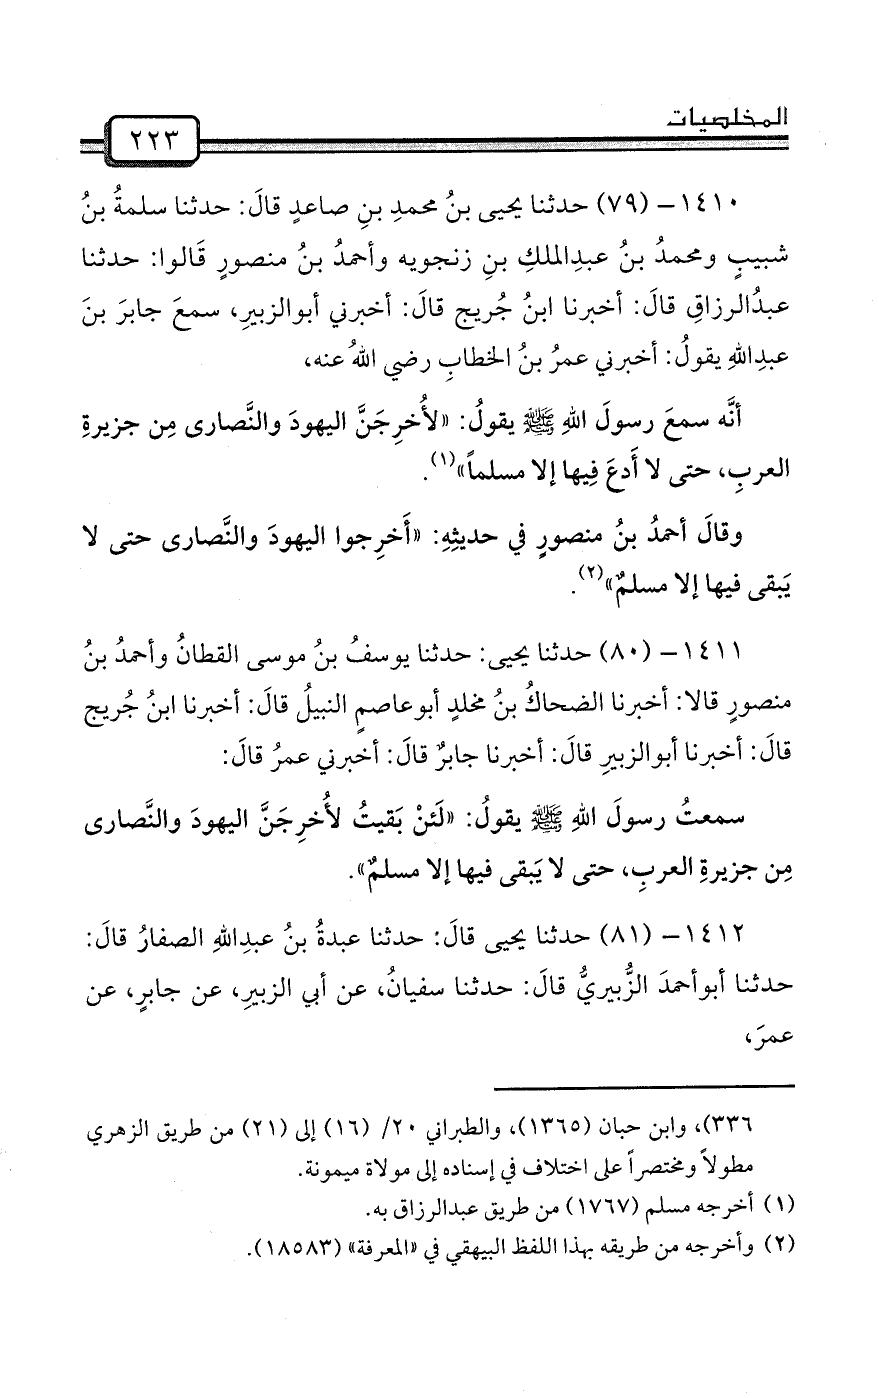 المخلصيات
٢٢٣
١٤١٠- (٧٩) حدثنا يحيى بنُ محمدِ بنِ صاعدٍ قالَ: حدثنا سلمةُ بنُ
شبيبٍ ومحمدُ بنُ عبدِالملكِ بنِ زنجويه وأحمدُ بنُ منصورٍ قَالوا: حدثنا
عبدُالرزاقِ قالَ: أخبرنا ابنُ جُريجٍ قالَ: أخبرني أبوالزبيرِ، سمعَ جابرَ بنَ
عبدِاللهِ يقولُ: أخبرني عمرُ بنُ الخطابِ رضي اللهُ عنه،
أنَّه سمعَ رسولَ اللهِ ﷺ يقولُ: «لأُخرِجَنَّ اليهودَ والنَّصارى مِن جزيرةِ
العربِ، حتى لا أَدعَ فِيها إلا مسلماً»(١).
وقالَ أحمدُ بنُ منصورٍ في حديثِهِ: «أَخرِجوا اليهودَ والنَّصارى حتى لا
يَبقى فيها إلا مسلمٌ»(٢).
١٤١١- (٨٠) حدثنا يحيى: حدثنا يوسفُ بنُ موسى القطانُ وأحمدُ بنُ
منصورٍ قالا: أخبرنا الضحاكُ بنُ مخلدٍ أبوعاصمٍ النبيلُ قالَ: أخبرنا ابنُ جُريجٍ
قالَ: أخبرنا أبوالزبيرِ قالَ: أخبرنا جابرٌ قالَ: أخبرني عمرُ قالَ:
سمعتُ رسولَ اللهِ ﷺ يقولُ: «لَئنْ بَقيتُ لأُخرِجَنَّ اليهودَ والنَّصارى
مِن جزيرةِ العربِ، حتى لا يَبقى فيها إلا مسلمٌ».
١٤١٢- (٨١) حدثنا يحيى قالَ: حدثنا عبدةُ بنُ عبدِاللهِ الصفارُ قالَ:
حدثنا أبوأحمدَ الزُّبيريُّ قالَ: حدثنا سفيانُ، عن أبي الزبيرِ، عن جابرٍ، عن
عمرَ،
٣٣٦)، وابن حبان (١٣٦٥)، والطبراني ٢٠/ (١٦) إلى (٢١) من طريق الزهري
مطولاً ومختصراً على اختلاف في إسناده إلى مولاة ميمونة.
(١) أخرجه مسلم (١٧٦٧) من طريق عبدالرزاق به.
(٢) وأخرجه من طريقه بهذا اللفظ البيهقي في «المعرفة» (١٨٥٨٣).